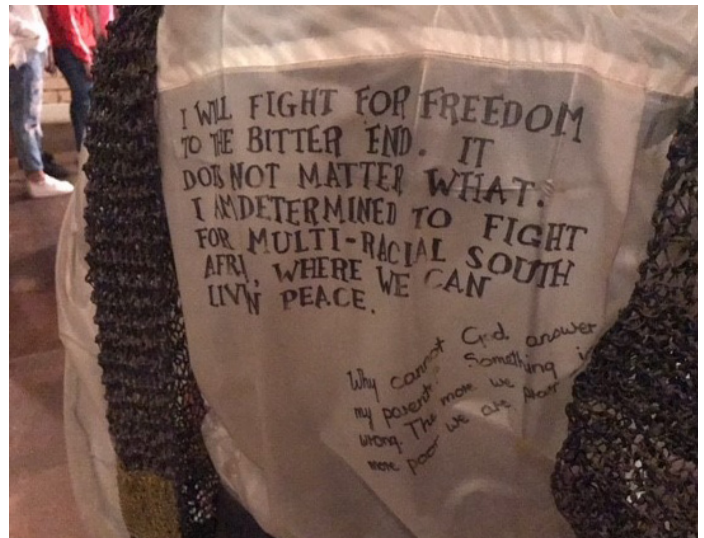 I WILL FIGHT FOR FREEDOM
TO THE BITTER END. IT
DOES NOT MATTER WHAT.
I AM DETERMINED TO FIGHT
FOR MULTI-RACIAL SOUTH
AFRI, WHERE WE CAN
LIV'N PEACE.
Why cannot God answer
my parents. Something i
wrong. The more we
more poor we are